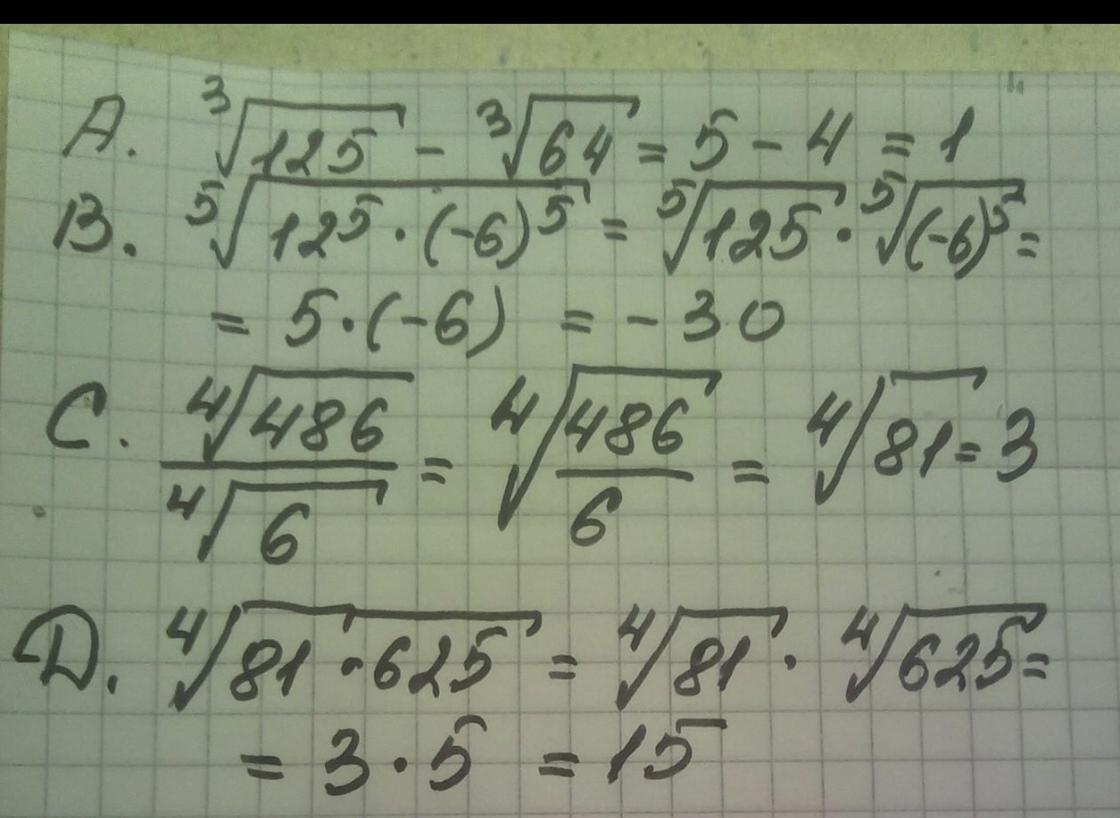 A. ∛125 - ∛64 = 5 - 4 = 1
B. ⁵√(12⁵ · (-6)⁵) = ⁵√125 · ⁵√(-6)⁵ =
= 5 · (-6) = -30
C. ⁴√486 / ⁴√6 = ⁴√(486/6) = ⁴√81 = 3
D. ⁴√(81 · 625) = ⁴√81 · ⁴√625 =
= 3 · 5 = 15